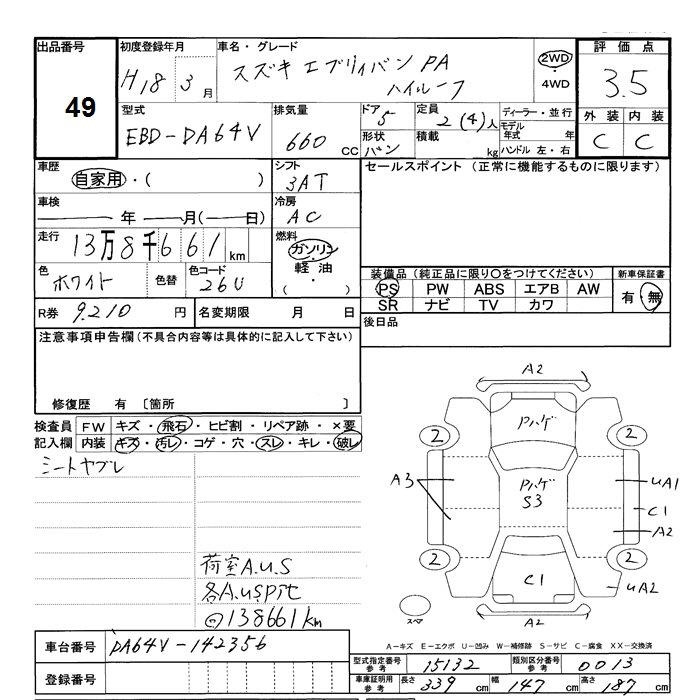 出品番号 初度登録年月 車名・グレード 評価点
49
H18 3 月 スズキ エブリイバン PA ハイルーフ
2WD ・ 4WD
3.5
型式 排気量 ドア 5 定員 2 (4) 人 ディーラー・並行 外装 内装
EBD-DA64V 660 CC 形状 バン 積載 kg モデル年式 年 ハンドル 左・右 C C
車歴 自家用・( )
シフト 3AT
セールスポイント (正常に機能するものに限ります)
車検 年 月( 日)
冷房 AC
走行 13万8千661 km
燃料 ガソリン ・ 軽油 ・ ( )
色 ホワイト 色替 色コード 26U
装備品 (純正品に限り○をつけてください) 新車保証書
PS PW ABS エアB AW 有・無
SR ナビ TV カワ
R券 9,210 円 名変期限 月 日
後日品
注意事項申告欄(不具合内容等は具体的に記入して下さい)
修復歴 有 〔箇所 〕
検査員記入欄 FW キズ・飛石・ヒビ割・リペア跡・×要
内装 キズ・汚レ・コゲ・穴・スレ・キレ・破レ
シートヤブレ
荷室A.U.S
各A.uspit
138661km
A2
Pハゲ
2 2
A3 Pハゲ S3 uA1
C1
A2
2 2
C1 uA2
スペア
A2
A-キズ E-エクボ U-凹み W-補修跡 S-サビ C-腐食 XX-交換済
車台番号 DA64V-142356
登録番号
型式指定番号 参考 15132 類別区分番号 参考 0013
車庫証明用 参考 長さ 339 cm 幅 147 cm 高さ 187 cm